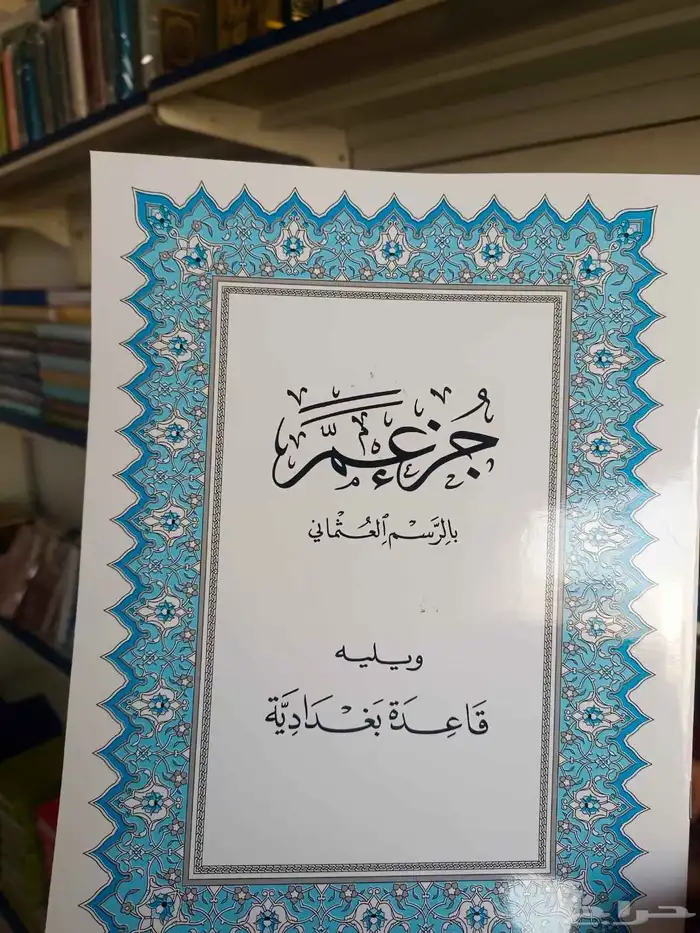 جُزْءُ عَمَّ
بِالرَّسْمِ ٱلْعُثْمَانِي
ويليه
قَاعِدَة بَغْدَادِيَّة
حراج